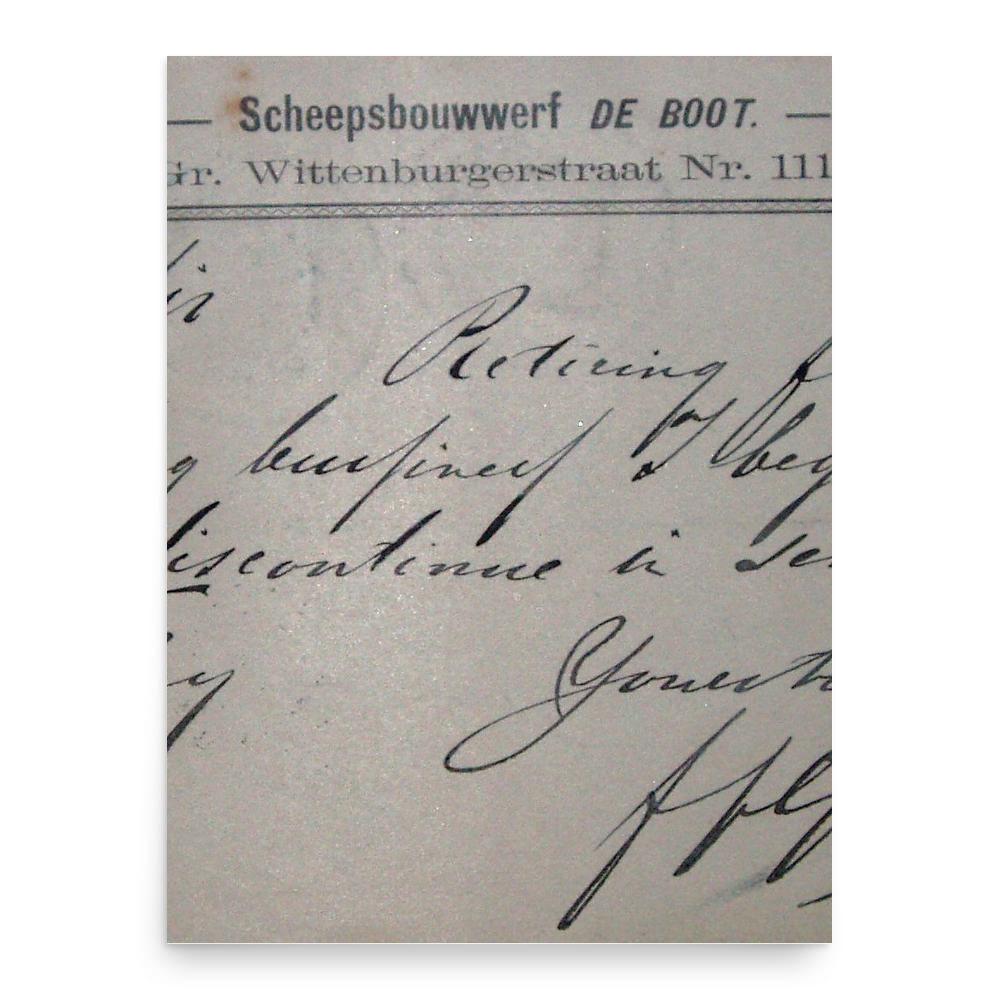 — Scheepsbouwwerf DE BOOT. —
Gr. Wittenburgerstraat Nr. 111
Sir
Retiring f
g business I beg
discontinue
Yours